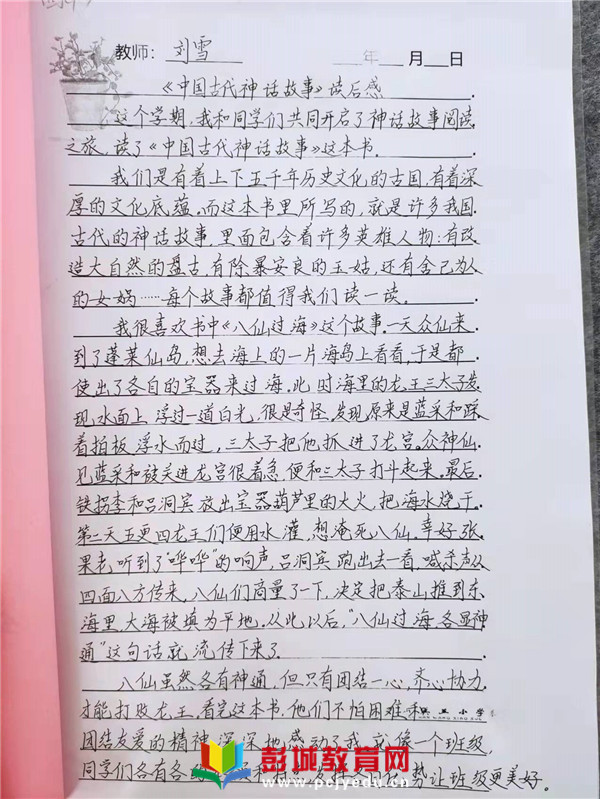 教师：刘雪 年 月 日
《中国古代神话故事》读后感
这个学期，我和同学们共同开启了神话故事阅读
之旅，读了《中国古代神话故事》这本书。
我们是有着上下五千年历史文化的古国，有着深
厚的文化底蕴。而这本书里所写的，就是许多我国
古代的神话故事，里面包含着许多英雄人物：有改
造大自然的盘古，有除暴安良的玉姑，还有舍己为人
的女娲……每个故事都值得我们读一读。
我很喜欢书中《八仙过海》这个故事。一天众仙来
到了蓬莱仙岛，想去海上的一片海岛上看看，于是都
使出了各自的宝器来过海。此时海里的龙王三太子发
现，水面上浮过一道白光，很是奇怪。发现原来是蓝采和踩
着拍板浮水而过，三太子把他抓进了龙宫。众神仙
见蓝采和被关进龙宫很着急，便和三太子打斗起来。最后
铁拐李和吕洞宾放出宝器葫芦里的大火，把海水烧干。
第二天五更四龙王们便用水灌，想淹死八仙。幸好，张
果老听到了“哗哗”的响声，吕洞宾跑出去一看，喊杀声从
四面八方传来，八仙们商量了一下，决定把泰山推到东
海里，大海被填为平地。从此以后，“八仙过海，各显神
通”这句话就流传下来了。
八仙虽然各有神通，但只有团结一心，齐心协力
才能打败龙王，看完这本书，他们不怕困难和
小学
团结友爱的精神深深地感动了我，就像一个班级，
同学们各有各的 势让班级更美好。
彭城教育网
www.pcjyedu.cn